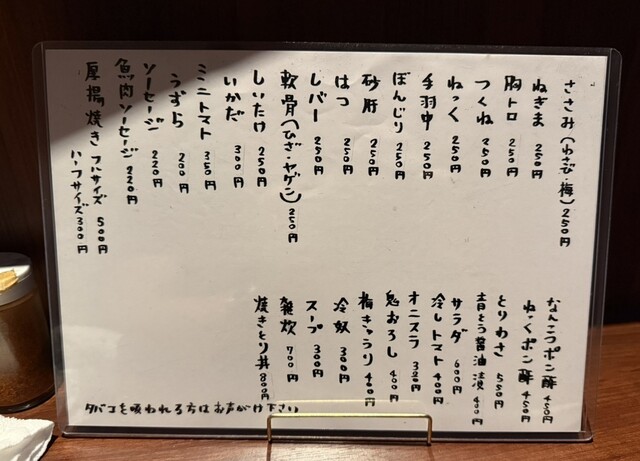 ささみ(わさび・梅) 250円
ねぎま 250円
胸トロ 250円
つくね 250円
ねっく 250円
手羽中 250円
ぼんじり 250円
砂肝 250円
はつ 250円
レバー 250円
軟骨(ひざ・ヤゲン) 250円
しいたけ 250円
いかだ 300円
ミニトマト 350円
うずら 200円
ソーセージ 220円
魚肉ソーセージ 220円
厚揚焼き フルサイズ 500円
ハーフサイズ 300円
なんこつポン酢 450円
ねっくポン酢 450円
とりわさ 550円
青とう醤油漬 400円
サラダ 600円
冷しトマト 400円
オニスラ 320円
鬼おろし 400円
梅きゅうり 400円
冷奴 300円
スープ 300円
雑炊 700円
焼きとり丼 800円
タバコを吸われる方はお声がけ下さい